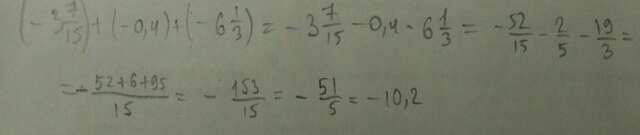 (-3 7/15) + (-0,4) + (-6 1/3) = -3 7/15 - 0,4 - 6 1/3 = -52/15 - 2/5 - 19/3 =
= -52+6+95/15 = -153/15 = -51/5 = -10,2